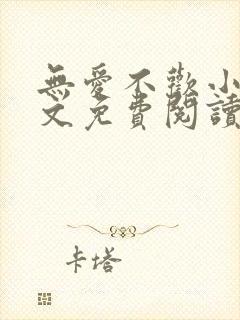 無愛不歡小
文免費閱讀
卡塔